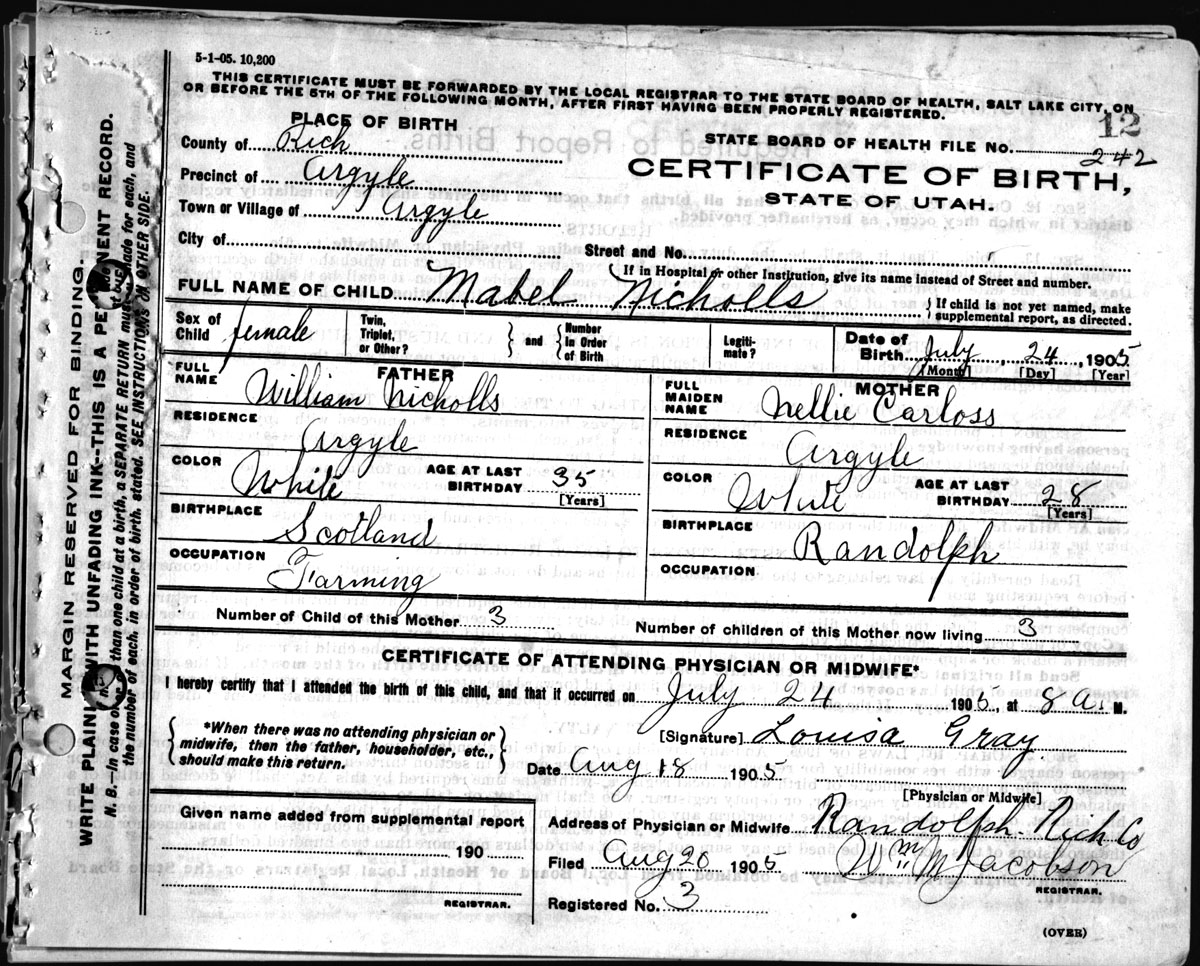 5-1-05. 10,200
THIS CERTIFICATE MUST BE FORWARDED BY THE LOCAL REGISTRAR TO THE STATE BOARD OF HEALTH, SALT LAKE CITY, ON
OR BEFORE THE 5TH OF THE FOLLOWING MONTH, AFTER FIRST HAVING BEEN PROPERLY REGISTERED.
12
PLACE OF BIRTH
STATE BOARD OF HEALTH FILE NO. 242
County of Rich
CERTIFICATE OF BIRTH,
Precinct of Argyle
STATE OF UTAH.
Town or Village of Argyle
City of
Street and No.
If in Hospital or other Institution, give its name instead of Street and number.
FULL NAME OF CHILD Mabel Nicholls
If child is not yet named, make
supplemental report, as directed.
Sex of Child female
Twin, Triplet, or Other?
and
Number in Order of Birth
Legiti-mate?
Date of Birth July 24, 1905
[Month] [Day] [Year]
FATHER
FULL NAME William Nicholls
RESIDENCE
Argyle
COLOR White
AGE AT LAST BIRTHDAY 35
[Years]
BIRTHPLACE
Scotland
OCCUPATION
Farming
MOTHER
FULL MAIDEN NAME Nellie Carloss
RESIDENCE
Argyle
COLOR White
AGE AT LAST BIRTHDAY 28
[Years]
BIRTHPLACE
Randolph
OCCUPATION
Number of Child of this Mother 3
Number of children of this Mother now living 3
CERTIFICATE OF ATTENDING PHYSICIAN OR MIDWIFE*
I hereby certify that I attended the birth of this child, and that it occurred on July 24 1905, at 8 A M.
*When there was no attending physician or
midwife, then the father, householder, etc.,
should make this return.
[Signature] Louisa Gray
Date Aug 18 1905
[Physician or Midwife]
Given name added from supplemental report
190
REGISTRAR.
Address of Physician or Midwife Randolph Rich Co
Filed Aug 20 1905
Wm M Jacobson
REGISTRAR.
Registered No. 3
(OVER)
MARGIN RESERVED FOR BINDING.
WRITE PLAINLY WITH UNFADING INK--THIS IS A PERMANENT RECORD.
N. B.--In case of more than one child at a birth, a SEPARATE RETURN must be made for each, and
the number of each, in order of birth, stated. SEE INSTRUCTIONS ON OTHER SIDE.